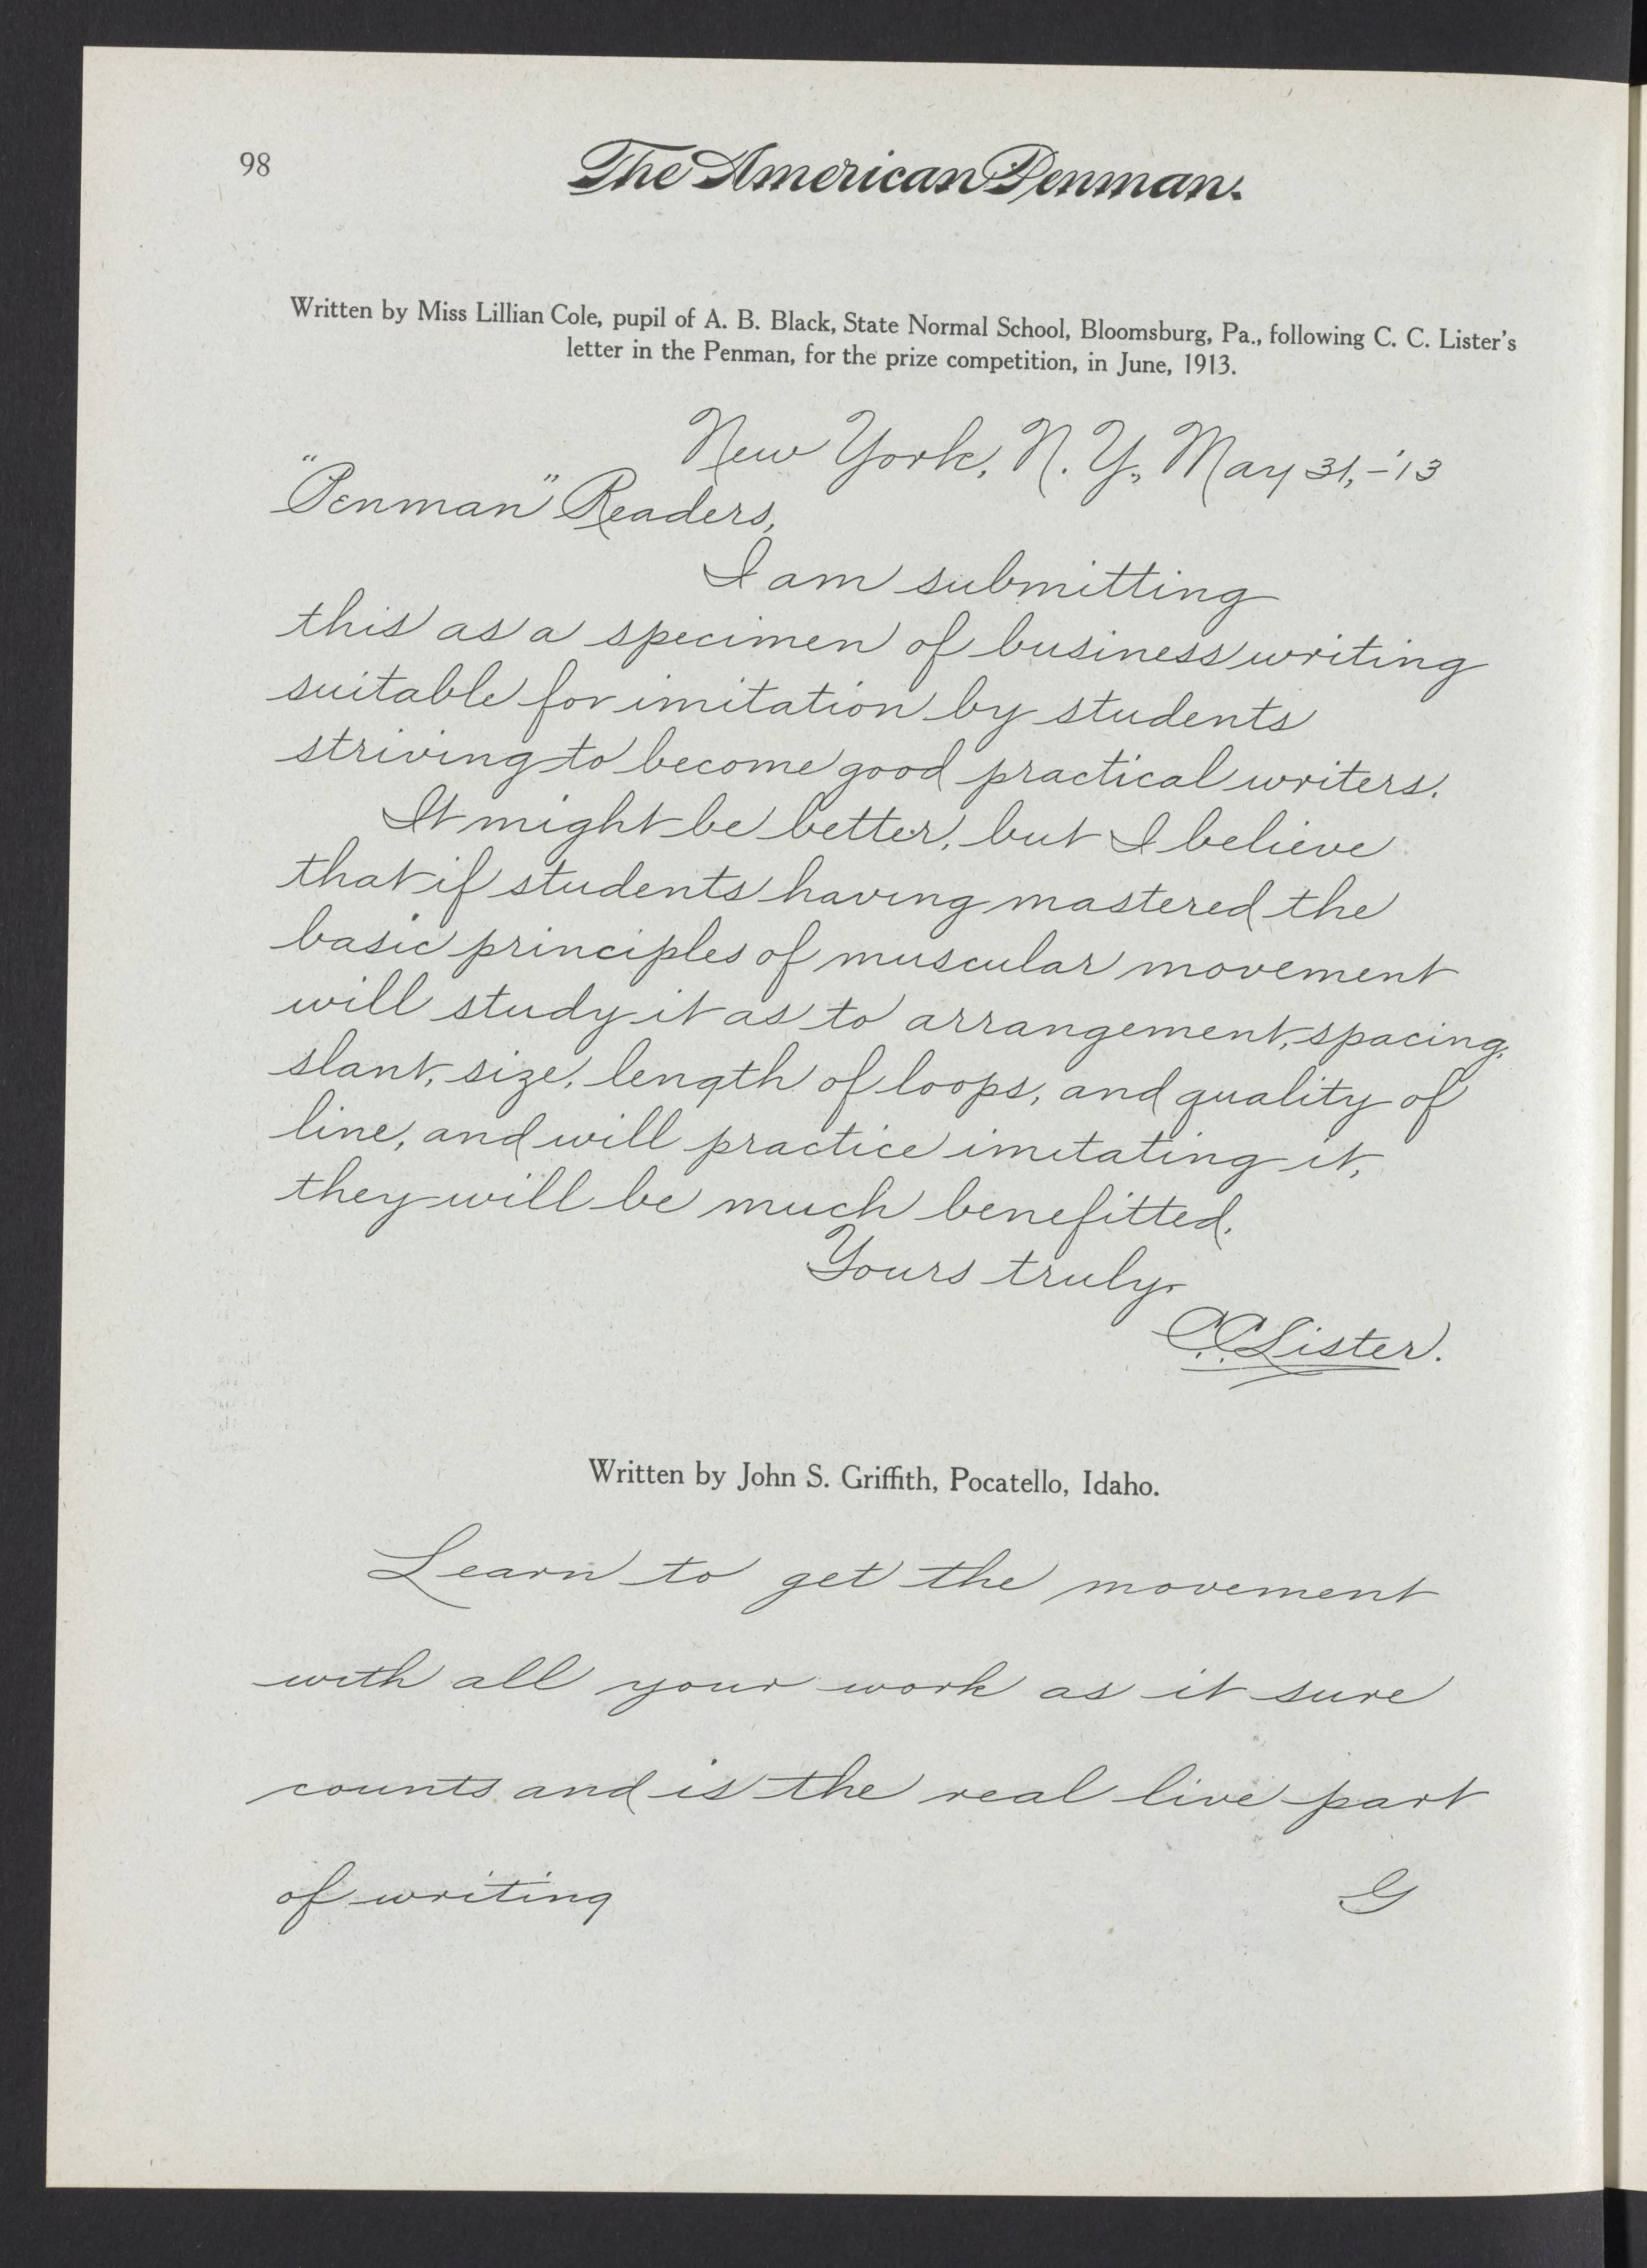 98
The American Penman.
Written by Miss Lillian Cole, pupil of A. B. Black, State Normal School, Bloomsburg, Pa., following C. C. Lister's
letter in the Penman, for the prize competition, in June, 1913.
New York, N. Y., May 31, – '13
"Penman" Readers,
I am submitting
this as a specimen of business writing
suitable for imitation by students
striving to become good practical writers.
It might be better, but I believe
that if students having mastered the
basic principles of muscular movement
will study it as to arrangement, spacing,
slant, size, length of loops, and quality of
line, and will practice imitating it,
they will be much benefitted.
Yours truly,
C. C. Lister.
Written by John S. Griffith, Pocatello, Idaho.
Learn to get the movement
with all your work as it sure
counts and is the real live part
of writing G